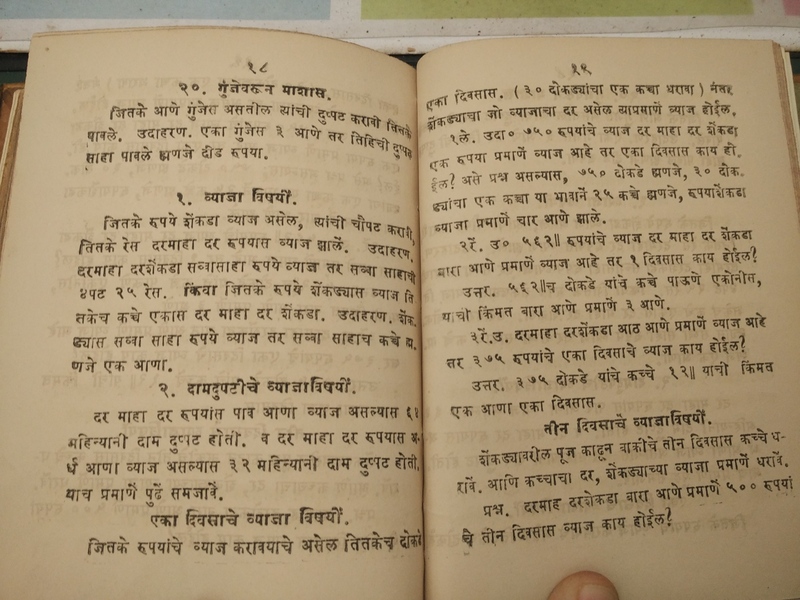 १८
२०. गुंजेवरून माशास.
जितके आणे गुंजेस असतील त्यांची दुप्पट करावी तितके
पावले. उदाहरण. एका गुंजेस ३ आणे तर तिहिची दुप्पट
साहा पावले ह्मणजे दीड रुपया.
१. व्याजा विषयीं.
जितके रुपये शेंकडा व्याज असेल, त्यांची चौपट करावी,
तितके रेस दरमाहा दर रुपयास व्याज झालें. उदाहरण.
दरमाहा दरशेंकडा सव्वासाहा रुपये व्याज तर सव्वा साहाची
४पट २५ रेस. किंवा जितके रुपये शेंकड्यास व्याज ति
तकेच कच्चे एकास दर माहा दर शेंकडा. उदाहरण. शेंक
ड्यास सव्वा साहा रुपये व्याज तर सव्वा साहाच कच्चे ह्म
णजे एक आणा.
२. दामदुपटीचे व्याजाविषयीं.
दर माहा दर रुपयांस पाव आणा व्याज असल्यास ६४
महिन्यानी दाम दुप्पट होती. व दर माहा दर रुपयास अ-
र्ध आणा व्याज असल्यास ३२ महिन्यानी दाम दुप्पट होती.
याच प्रमाणें पुढें समजावें.
एका दिवसाचे व्याजा विषयीं.
जितके रुपयांचे व्याज करावयाचे असेल तितकेच दोकडे
१९
एका दिवसास. (३० दोकड्यांचा एक कच्चा धरावा) नंतर
शेंकड्याचा जो व्याजाचा दर असेल त्याप्रमाणें व्याज होईल.
१ले. उदा० ७५० रुपयांचे व्याज दर माहा दर शेंकडा
एक रुपया प्रमाणें व्याज आहे तर एका दिवसास काय हो.
ईल? असे प्रश्न असल्यास, ७५० दोकडे ह्मणजे, ३० दोक.
ड्यांचा एक कच्चा या भावानें २५ कच्चे ह्मणजे, रुपयाशेंकडा
व्याजा प्रमाणें चार आणे झाले.
२रें. उ० ५६२॥ रुपयांचे व्याज दर माहा दर शेंकडा
बारा आणे प्रमाणें व्याज आहे तर १ दिवसास काय होईल?
उत्तर. ५६२॥च दोकडे यांचे कच्चे पाऊणे एकोनीस,
याची किंमत बारा आणे प्रमाणें ३ आणे.
३रें.उ. दरमाहा दरशेंकडा आठ आणे प्रमाणें व्याज आहे
तर ३७५ रुपयांचे एका दिवसाचे व्याज काय होईल?
उत्तर. ३७५ दोकडे यांचे कच्चे १२॥ याची किंमत
एक आणा एका दिवसास.
तीन दिवसाचे व्याजाविषयीं.
शेंकड्यावरील पूज काढून बाकीचे तीन दिवसास कच्चे ध-
रावें. आणि कच्चाचा दर, शेंकड्याच्या व्याजा प्रमाणें धरावें.
प्रश्न. दरमाह दरशेकडा बारा आणे प्रमाणें ५०० रुपयां
चे तीन दिवसास व्याज काय होईल?